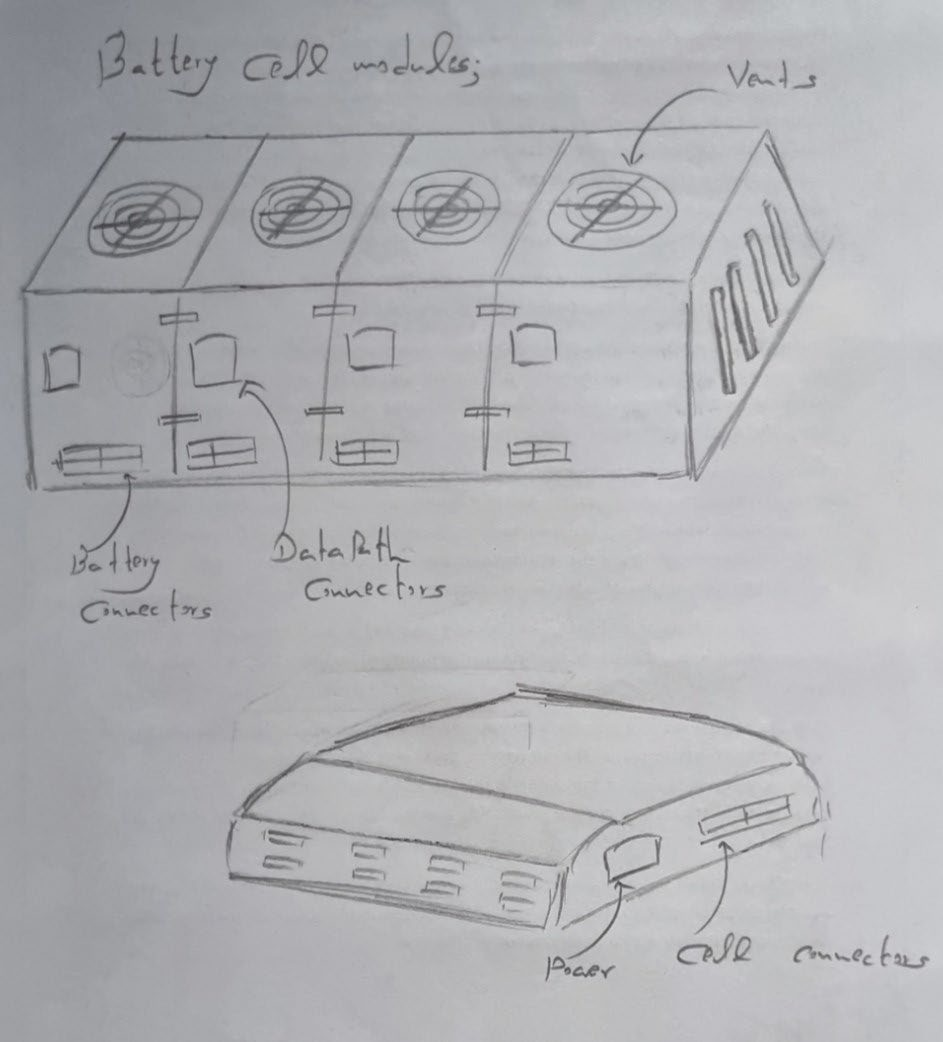 Battery cell modules;
Vents
Battery
Connectors
DataPath
Connectors
Power
Cell connectors